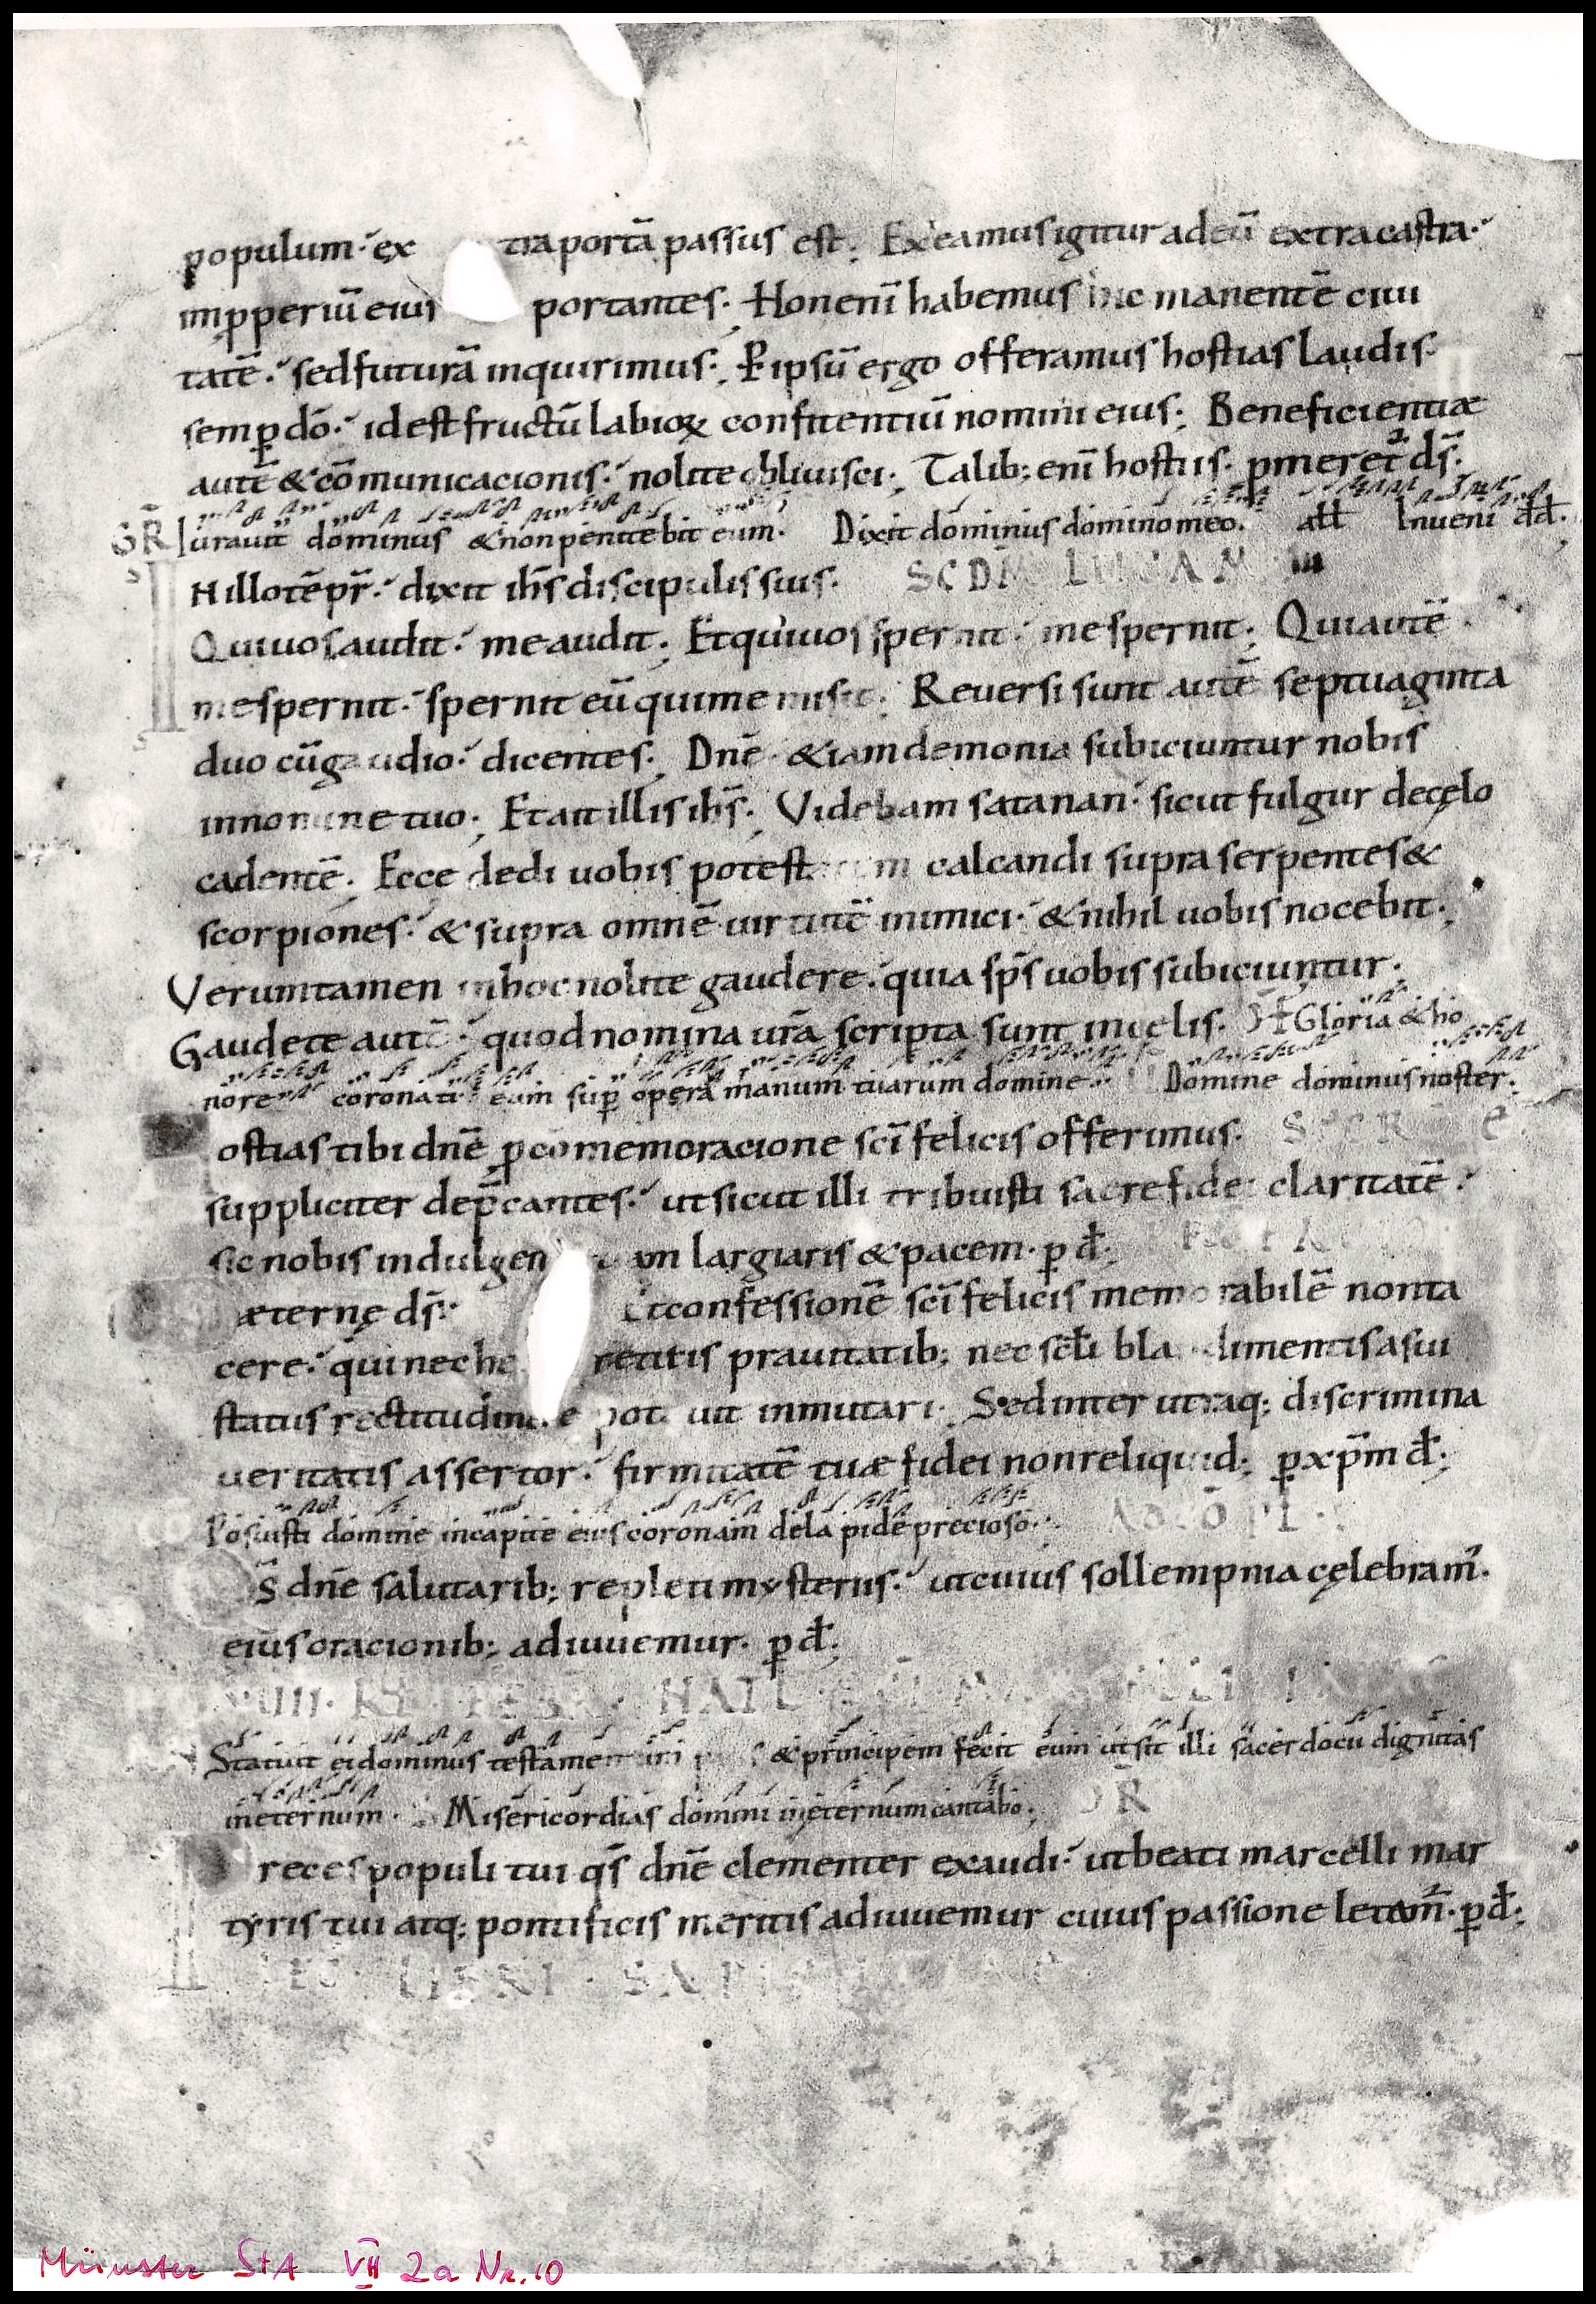 populum· ex tra portā passus est; Exeamus igitur ad eū extra castra·
imꝓperiū eius portantes; Non enī habemus hic manentē ciui
tatē· sed futurā inquirimus; P ipsū ergo offeramus hostias laudis
semꝑ dō· id est fructū labioꝝ confitentiū nomini eius; Beneficientiæ
autē & cōmunicacionis· nolite obliuisci; Talib; enī hostiis· ꝓmeret² ds̄·
GR̄ Iurauit dominus & non penitebit eum· Dixit dominus domino meo· all Inueni d̄d·
IN illo tēpr̄· dixit ih̄s discipulis suis· SCDM LUCAM
Qui uos audit· me audit; Et qui uos spernit· me spernit; Qui autē
me spernit· spernit eū qui me misit; Reuersi sunt autē septuaginta
duo cū gaudio· dicentes; Dn̄e &iam demonia subiciuntur nobis
in nomine tuo; Et ait illis ih̄s; Videbam satanan· sicut fulgur de cęlo
cadentē; Ecce dedi uobis potest m calcandi supra serpentes &
scorpiones· & supra omnē uirtutē inimici· & nihil uobis nocebit;
Verumtamen in hoc nolite gaudere· quia sp̄s uobis subiciuntur;
Gaudete autē· quod nomina ur̄a scripta sunt in celis· OF̄ Gloria & ho
nore coronasti eum suꝑ opera manum tuarum domine· Domine dominus noster·
ostias tibi dn̄e ꝓ cōmemoracione sc̄i felicis offerimus· SECRE
suppliciter dep̄cantes· ut sicut illi tribuisti sacre fidei claritatē·
sic nobis indulgen am largiaris & pacem· ꝑ d̄· PREFATIO
æternę ds̄· Et confessionē sc̄i felicis memorabilē non ta
cere· qui nec he reticis prauitatib; nec scl̄i bla dimentis a sui
status rectitudine pot uit inmutari; Sed inter utraq; discrimina
ueritatis assertor· firmitatē tuæ fidei non reliquid; ꝑ xp̄m d̄·
Posuisti domine in capite eius coronam de lapide precioso· AD CŌPL·
s̄ dn̄e salutarib; repleti mysteriis· ut cuius sollempnia cęlebram²·
eius oracionib; adiuuemur· ꝑ d̄;
XVIII· KL FEBR· NAT SCI MARCELLI
Statuit ei dominus testamentum & principem fecit eum ut sit illi sacerdocii dignitas
in eternum· Misericordias domini in eternum cantabo; OR̄
Preces populi tui qs̄ dn̄e clementer exaudi· ut beati marcelli mar
tyris tui atq; pontificis meritis adiuuemur cuius passione letam²· ꝑ d̄;
LEC· LIBRI· SAPIENTIAE
Münster StA VII 2a Nr. 10